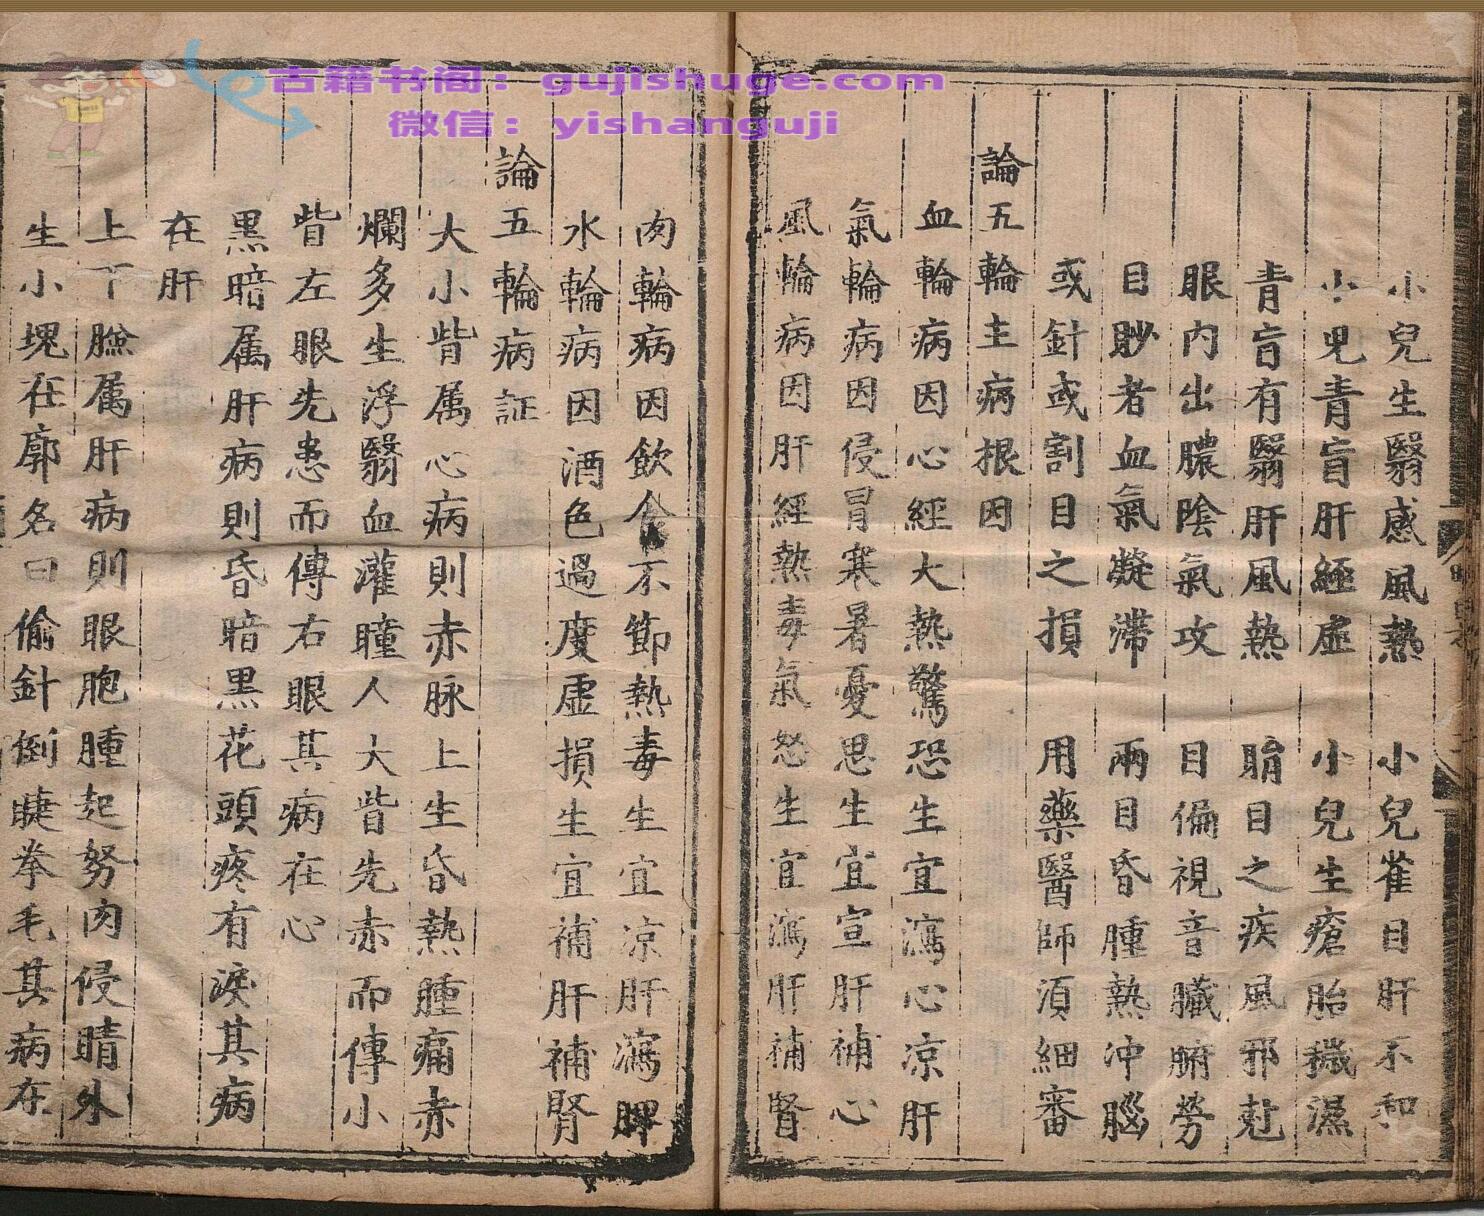 古籍书阁：gujishuge.com
微信：yishanguji
小兒生翳感風熱　小兒雀目肝不和
小兒青盲肝經虛　小兒生瘡胎穢濕
青盲有翳肝風熱　睛目之疾風邪尅
眼内出膿陰氣攻　目偏視音臟腑勞
目眇者血氣凝滯　兩目昏腫熱冲腦
或針或割目之損　用藥醫師須細審
論五輪主病根因
血輪病因心經大熱驚恐生宜瀉心凉肝
氣輪病因侵冒寒暑憂思生宜宣肝補心
風輪病因肝經熱毒氣怒生宜瀉肝補腎
肉輪病因飲食不節熱毒生宜凉肝瀉脾
水輪病因酒色過度虛損生宜補肝補腎
論五輪病証
大小眥属心病則赤脉上生昏熱腫痛赤
爛多生浮翳血灌瞳人大眥先赤而傳小
眥左眼先患而傳右眼其病在心
黑暗属肝病則昏暗黑花頭疼有淚其病
在肝
上下臉属肝病則眼胞腫起努肉侵睛外
生小塊在廓名曰偷針倒睫拳毛其病在